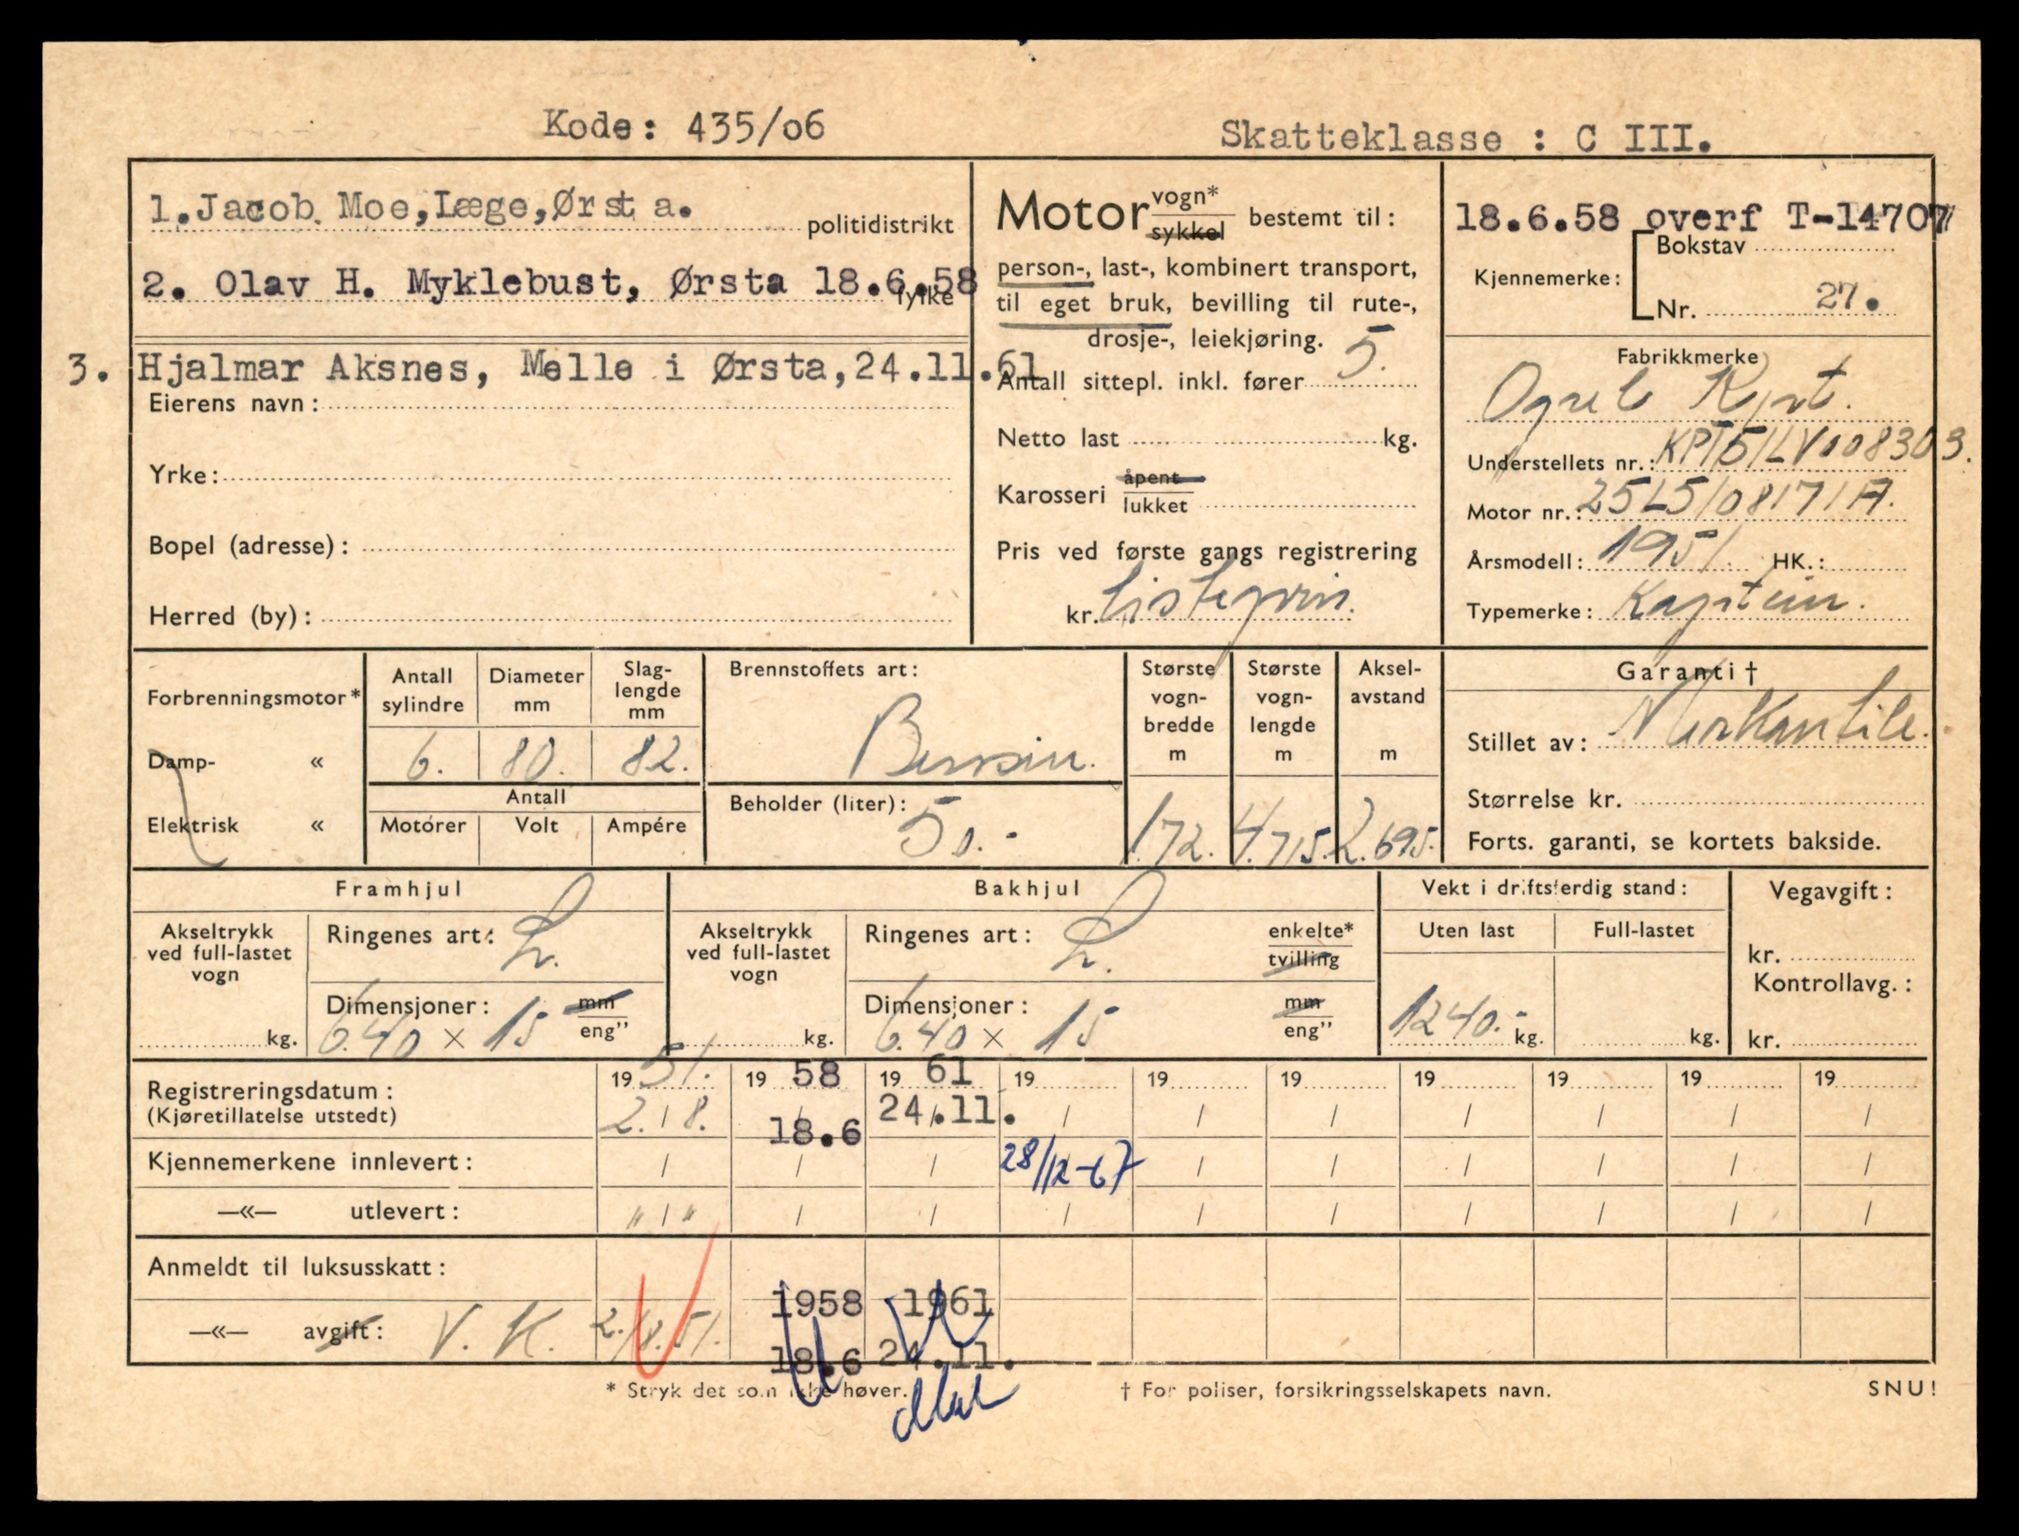 Kode: 435/06
Skatteklasse : C III.
1.Jacob Moe,Læge,Ørsta.
politidistrikt
2. Olav H. Myklebust, Ørsta 18.6.58
fylke
3. Hjalmar Aksnes, Melle i Ørsta,24.11.61
Eierens navn:
Yrke:
Bopel (adresse):
Herred (by):
Motor vogn* sykkel bestemt til:
person-, last-, kombinert transport,
til eget bruk, bevilling til rute-,
drosje-, leiekjøring.
Antall sittepl. inkl. fører 5.
Netto last kg.
Karosseri åpent lukket
Pris ved første gangs registrering
kr. Listepris.
18.6.58 overf T-14707
Kjennemerke: Bokstav
Nr. 27.
Fabrikkmerke
Understellets nr.: KPT51LV008303.
Motor nr.: 25L5108171A.
Årsmodell: 1951. HK.:
Typemerke:
Forbrenningsmotor*
Damp- «
Elektrisk «
Antall sylindre
Diameter mm
Slag-lengde mm
6. 80. 82.
Antall
Motorer Volt Ampére
Brennstoffets art:
Bensin.
Beholder (liter):
50.-
Største vogn-bredde m
Største vogn-lengde m
Aksel-avstand m
1.72. 4.715. 2.695.
Garanti †
Stillet av:
Størrelse kr.
Forts. garanti, se kortets bakside.
Framhjul
Akseltrykk ved full-lastet vogn
kg.
Ringenes art: L.
Dimensjoner: mm eng''
6.40 × 15
Bakhjul
Akseltrykk ved full-lastet vogn
kg.
Ringenes art: L. enkelte* tvilling
Dimensjoner: mm eng''
6.40 × 15
Vekt i driftsferdig stand:
Uten last Full-lastet
1240.- kg. kg.
Vegavgift:
kr.
Kontrollavg.:
kr.
Registreringsdatum: 19 51. 19 58 19 61 19 19 19 19 19 19 19
(Kjøretillatelse utstedt) 2./8. 18.6 24.11. / / / / / / /
Kjennemerkene innlevert: / / / 28/12-67 / / / / / /
—«— utlevert: " / " / / / / / / / / /
Anmeldt til luksusskatt:
1958 1961
—«— avgift: V. K. 2./8.51. 18.6 24.11.
* Stryk det som ikke høver.
† For poliser, forsikringsselskapets navn.
SNU!